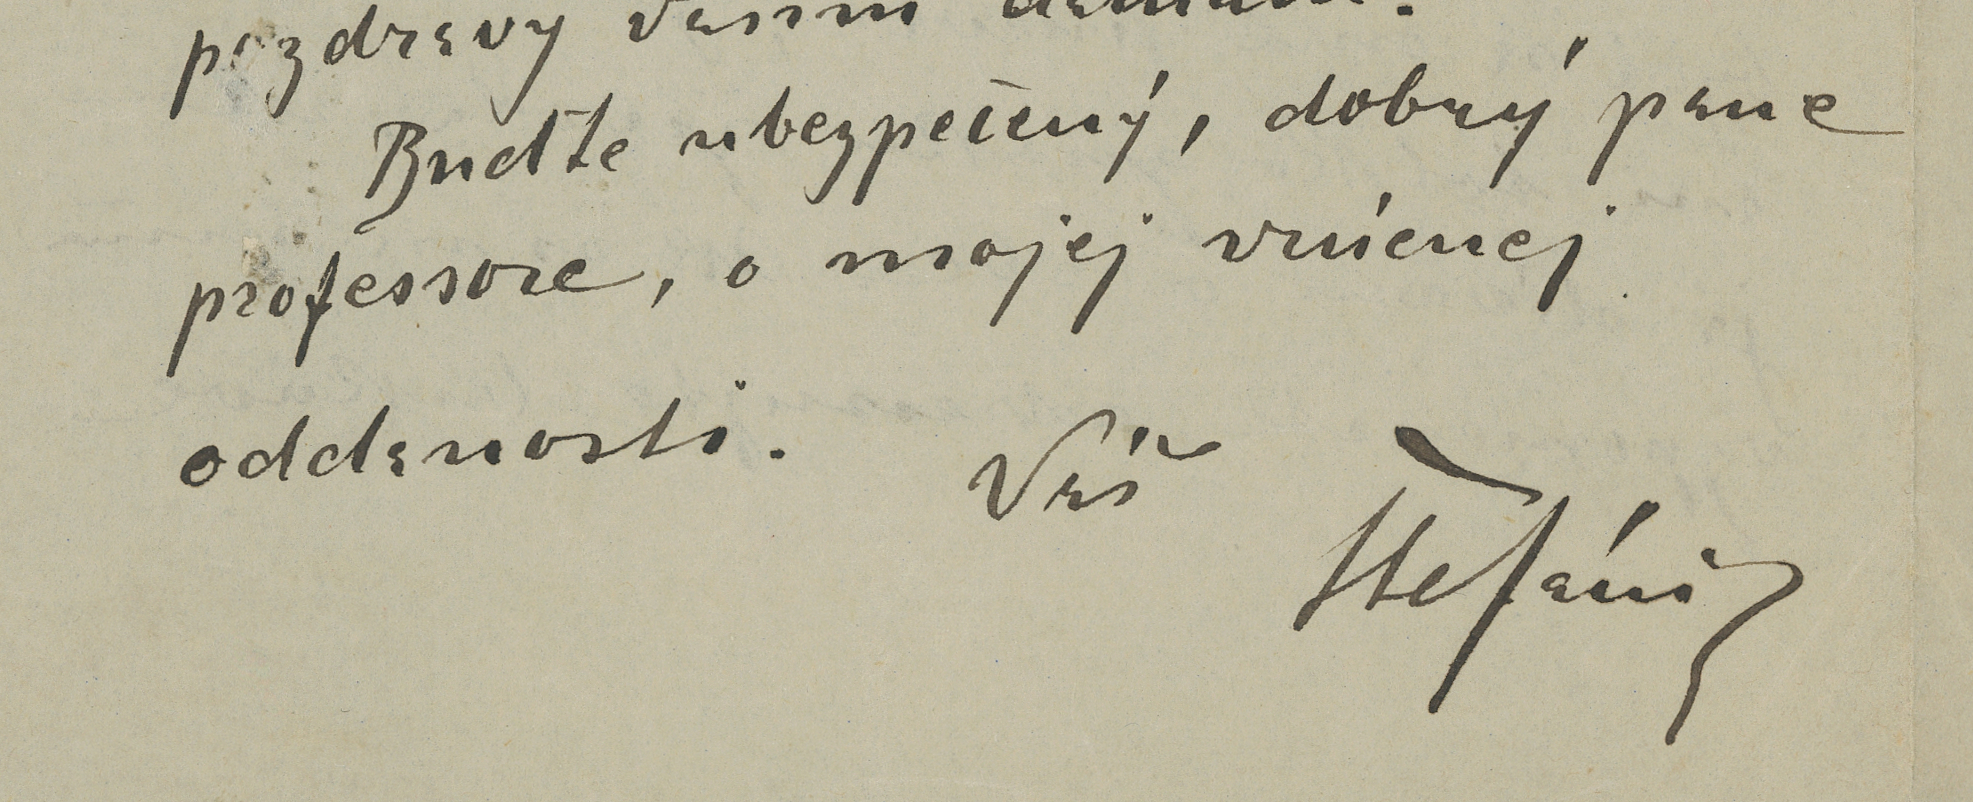 pozdravy
Buďte ubezpečený, dobrý pane
professore, o mojej vrúcnej
oddanosti. Váš
Štefánik